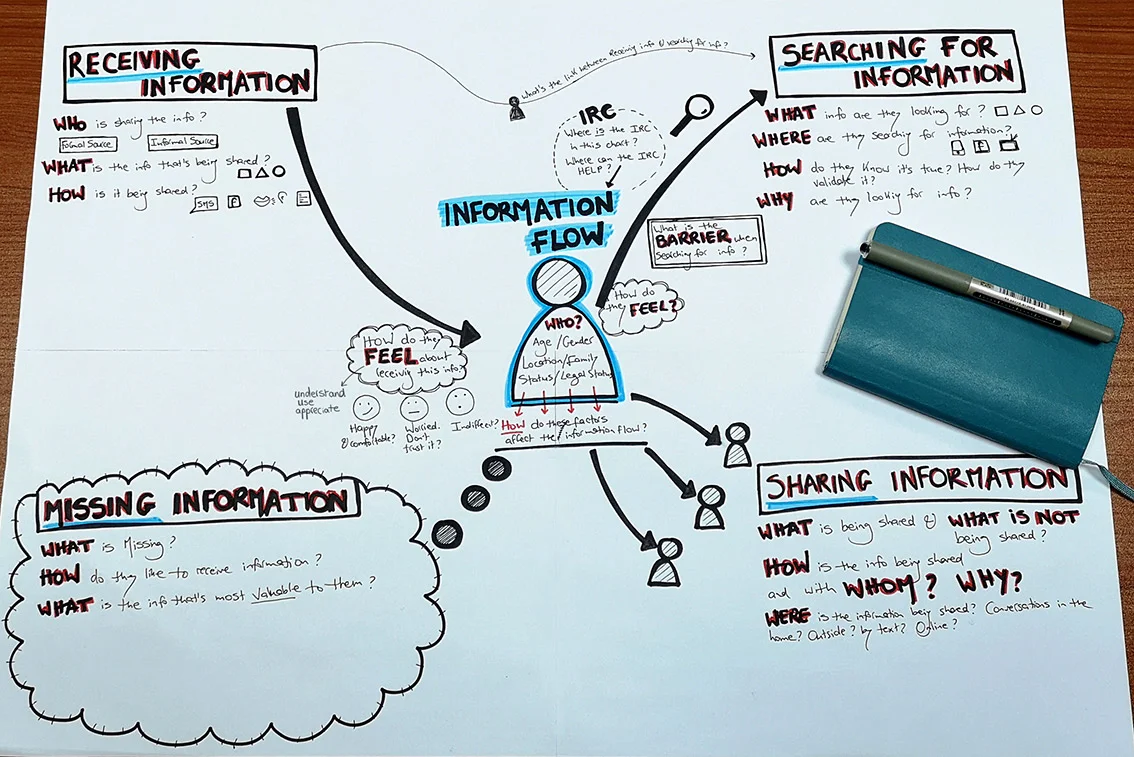 RECEIVING
INFORMATION
WHO is sharing the info?
Formal Source
Informal Source
WHAT is the info that's being shared?
HOW is it being shared?
SMS
What's the link between Receiving info & searching for info?
SEARCHING FOR
INFORMATION
WHAT info are they looking for?
WHERE are they searching for information?
HOW do they know it's true? How do they
validate it?
WHY are they looking for info?
IRC
Where is the IRC
in this chart?
Where can the IRC
HELP?
INFORMATION
FLOW
What is the
BARRIER when
searching for info?
How do
they FEEL?
WHO?
Age/Gender
Location/Family
Status/Legal Status
How do these factors
affect the information flow?
How do they
FEEL about
receivig this info?
understand
use
appreciate
Happy
& comfortable?
Worried.
Don't
trust it?
Indiffect?
MISSING INFORMATION
WHAT is Missing?
HOW do they like to receive information?
WHAT is the info that's most valuable to them?
SHARING INFORMATION
WHAT is being shared & WHAT IS NOT
being shared?
HOW is the info being shared
and with WHOM? WHY?
WERE is the information being shared? Conversations in the
home? Outside? by text? Online?